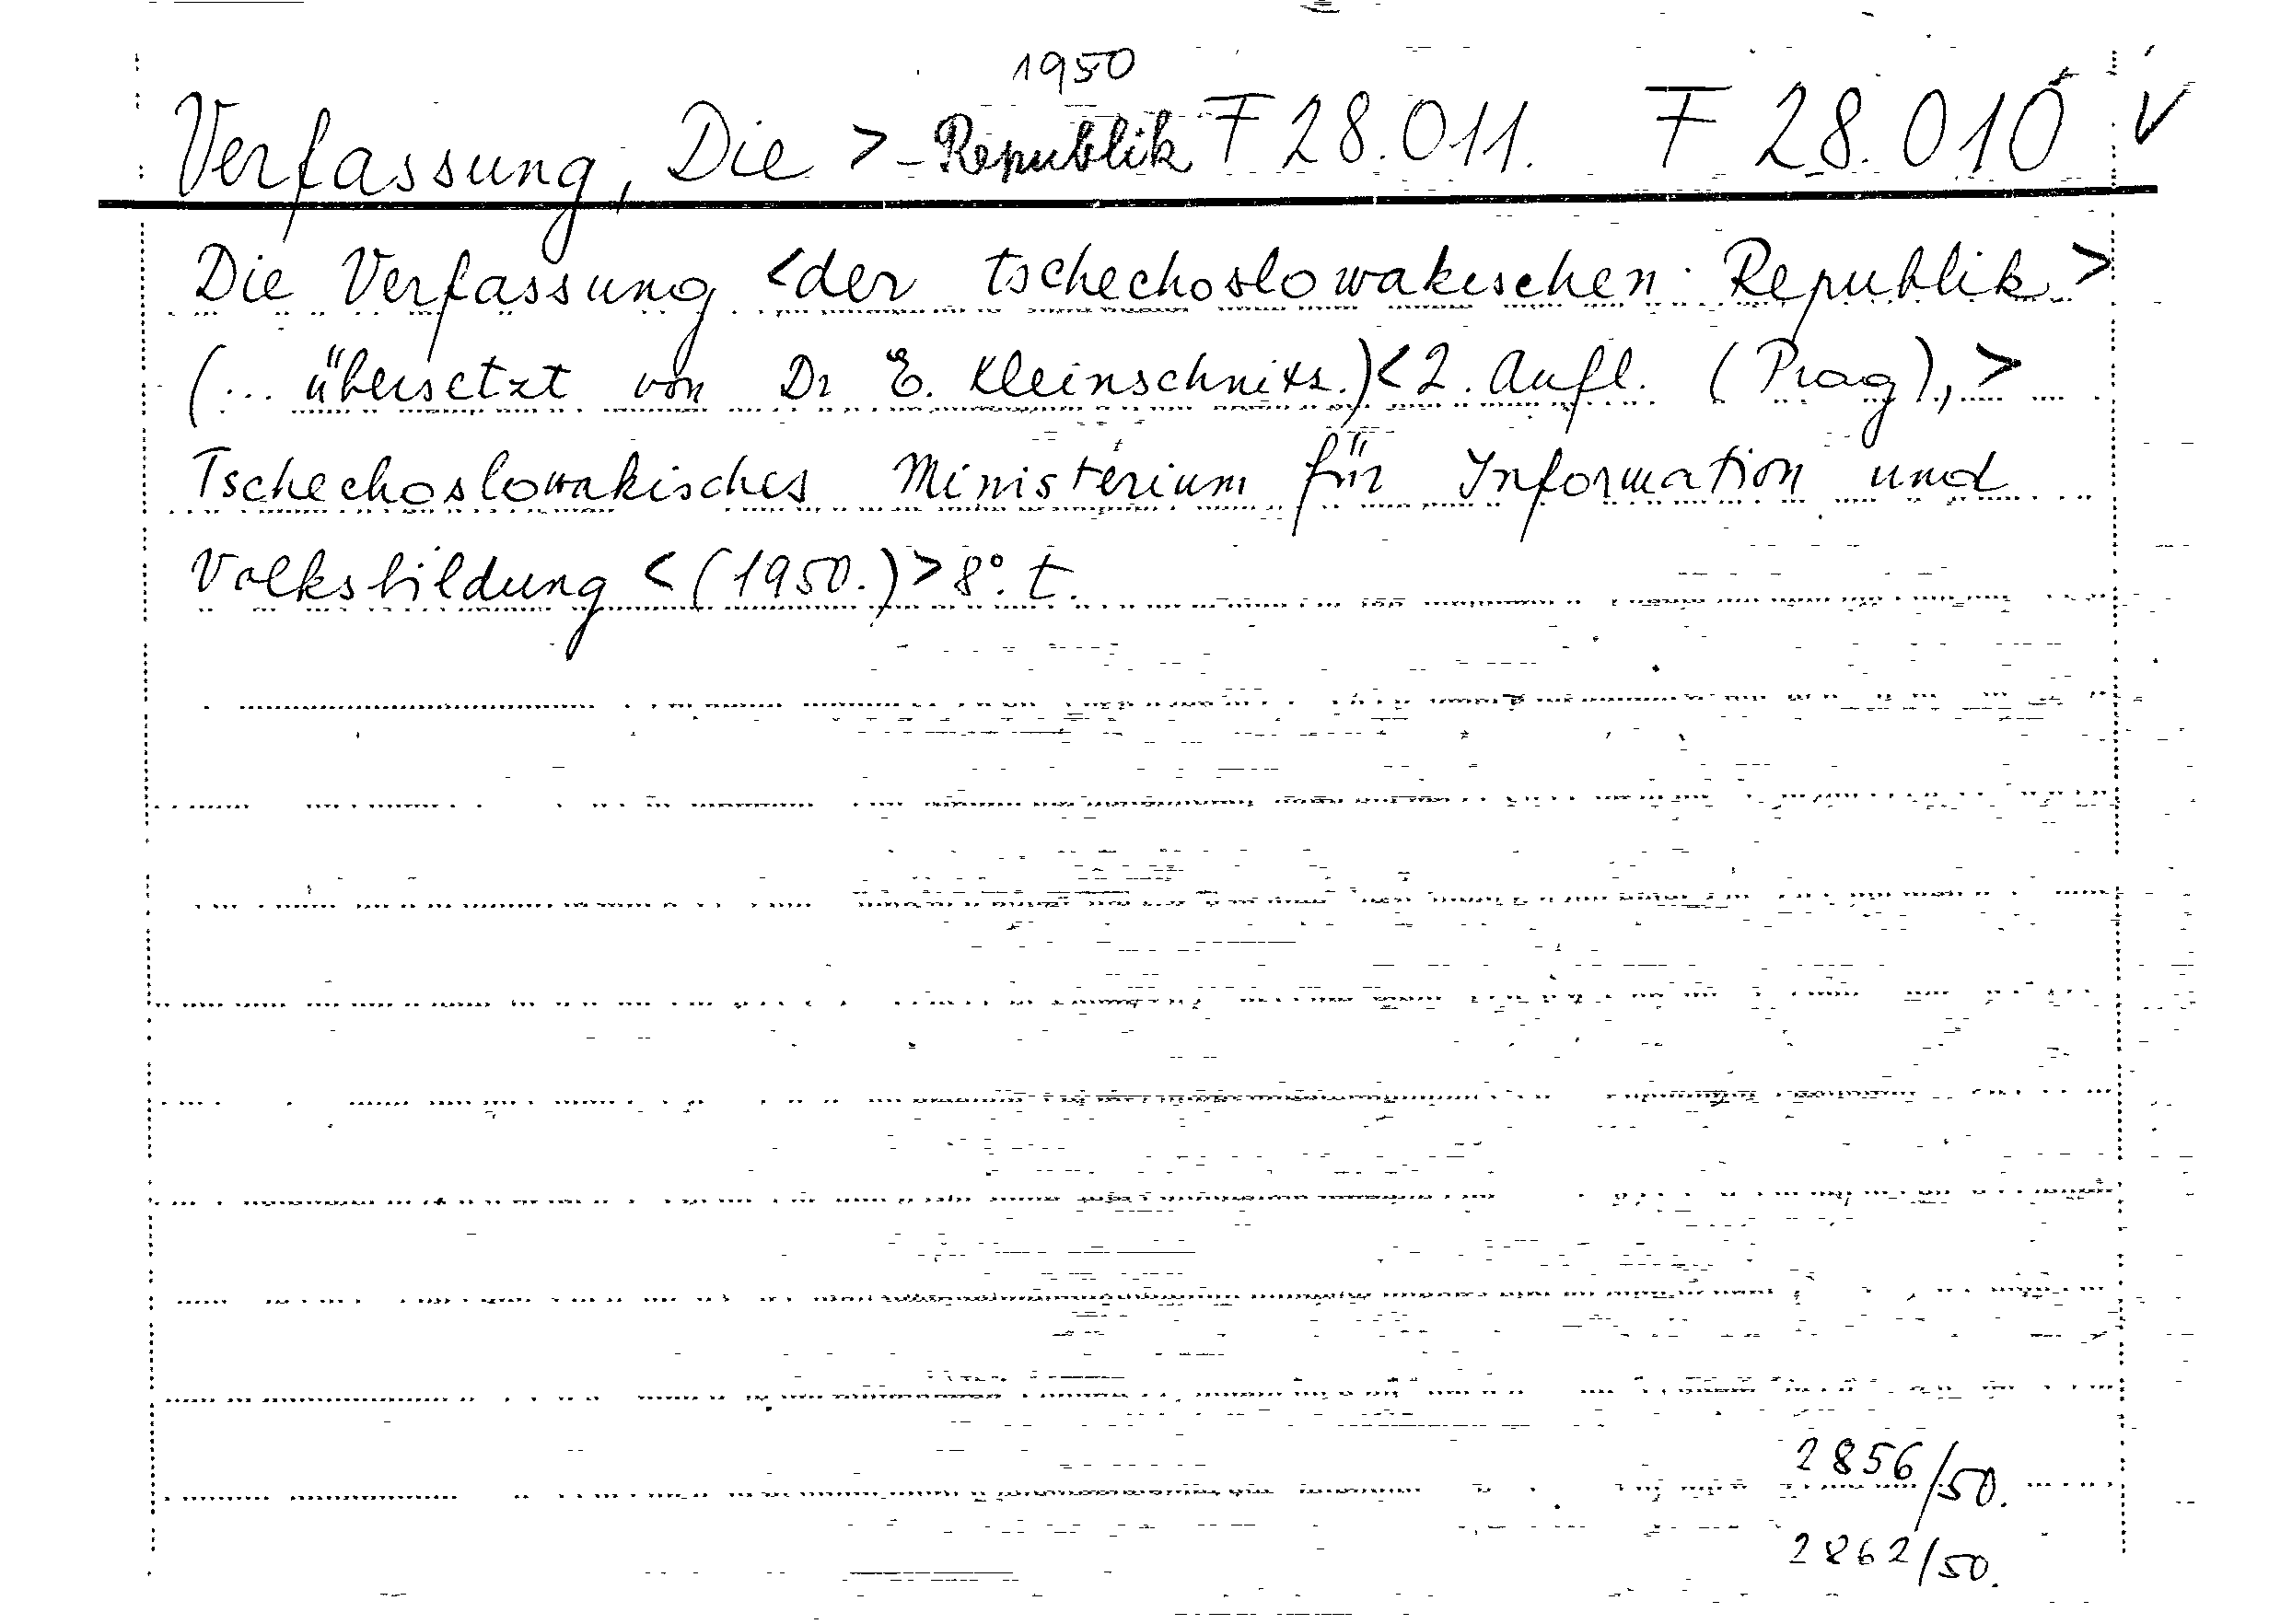 1950
Verfassung, Die > - Republik F 28.011. F 28.010 V
Die Verfassung <der tschechoslowakischen Republik>
(... übersetzt von Dr E. Kleinschnitz.) <2. Aufl. (Prag),>
Tschechoslowakisches Ministerium für Information und
Volksbildung <(1950.)> 8°. t.
2856/50.
2862/50.